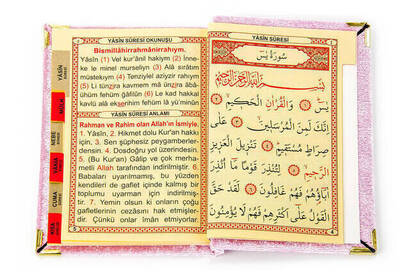 YÂSÎN SÛRESİ OKUNUŞU
Bismillâhirrahmânirrahıym.
Yâsîn (1) Vel kur'ânil hakiym (2) İnne-
ke le minel murseliyn (3) Alâ sırâtim
müstekıym (4) Tenziylel aziyzir rahıym
(5) Li tünzıra kavmem mâ ünzıra âbâ-
ühüm fehüm ğâfilûn (6) Le kad hakkal
kavlü alâ ekserihim fehüm lâ yü'minûn
YÂSİN SÛRESİ ANLAMI
Rahman ve Rahim olan Allah'ın İsmiyle.
1. Yâsîn, 2. Hikmet dolu Kur'an hakkı
için, 3. Sen şüphesiz peygamberler-
densin. 4. Dosdoğru yol üzerindesin.
5. (Bu Kur'an) Gâlip ve çok merha-
metli Allah tarafından indirilmiştir. 6.
Babaları uyarılmamış, bu yüzden
kendileri de gaflet içinde kalmış bir
toplumu uyarman için indirilmiş-
tir. 7. Yemin olsun ki onların çoğu
gafletlerinin cezasını hak etmişler-
dir. Çünkü onlar îman etmiyorlar.
YÂSÎN
CUMA
YÂSÎN SÛRESİ
سُورَةُ يٰسٓ
بِسْمِ اللّٰهِ الرَّحْمٰنِ الرَّحِيمِ
يٰسٓ ﴿١﴾ وَالْقُرْاٰنِ الْحَكِيمِ ﴿٢﴾
اِنَّكَ لَمِنَ الْمُرْسَلِينَ ﴿٣﴾ عَلٰى
صِرَاطٍ مُسْتَقِيمٍ ﴿٤﴾ تَنْزِيلَ الْعَزِيزِ
الرَّحِيمِ ﴿٥﴾ لِتُنْذِرَ قَوْمًا مَٓا اُنْذِرَ
اٰبَٓاؤُ۬هُمْ فَهُمْ غَافِلُونَ ﴿٦﴾ لَقَدْ حَقَّ
الْقَوْلُ عَلٰٓى اَكْثَرِهِمْ فَهُمْ لَا يُؤْمِنُونَ